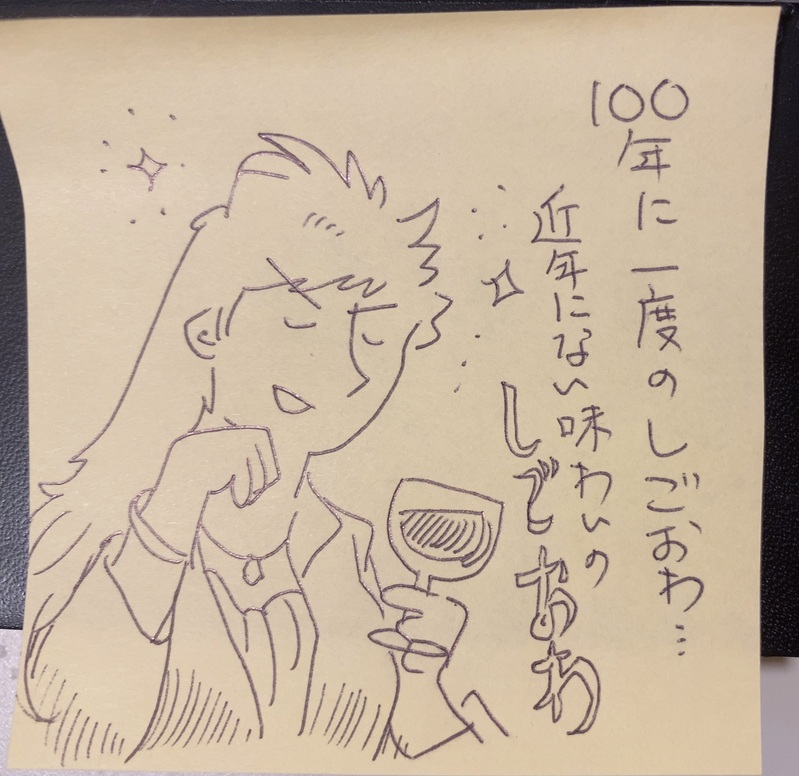 100年に一度のしごおわ…
近年にない味わいの
しごおわ